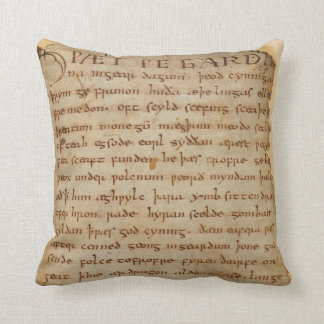 ÞÆT ǷE GARDE
na ingear dagum. þeod cyning
rym ge frunon huða æþelingas elle
re medon. oft scyld scefing sceaþe
reatum monegū mægþum meodo setl
of teah egsode eorl syððan ærest
ea sceaft funden he þæs frofre geb
under ƿolcnum ƿeorð myndum þ
oð ꝥ him æghƿylc þara ymb sittendr
er hron rade hyran scolde gomban
yldan ꝥ ƿæs god cyning. ðæm eafera ƿæs
æfter cenned geong ingeardum þone god
sende folce tofrofre fyren ðearfe on
geat ꝥ hie ær drugon aldor lease lange